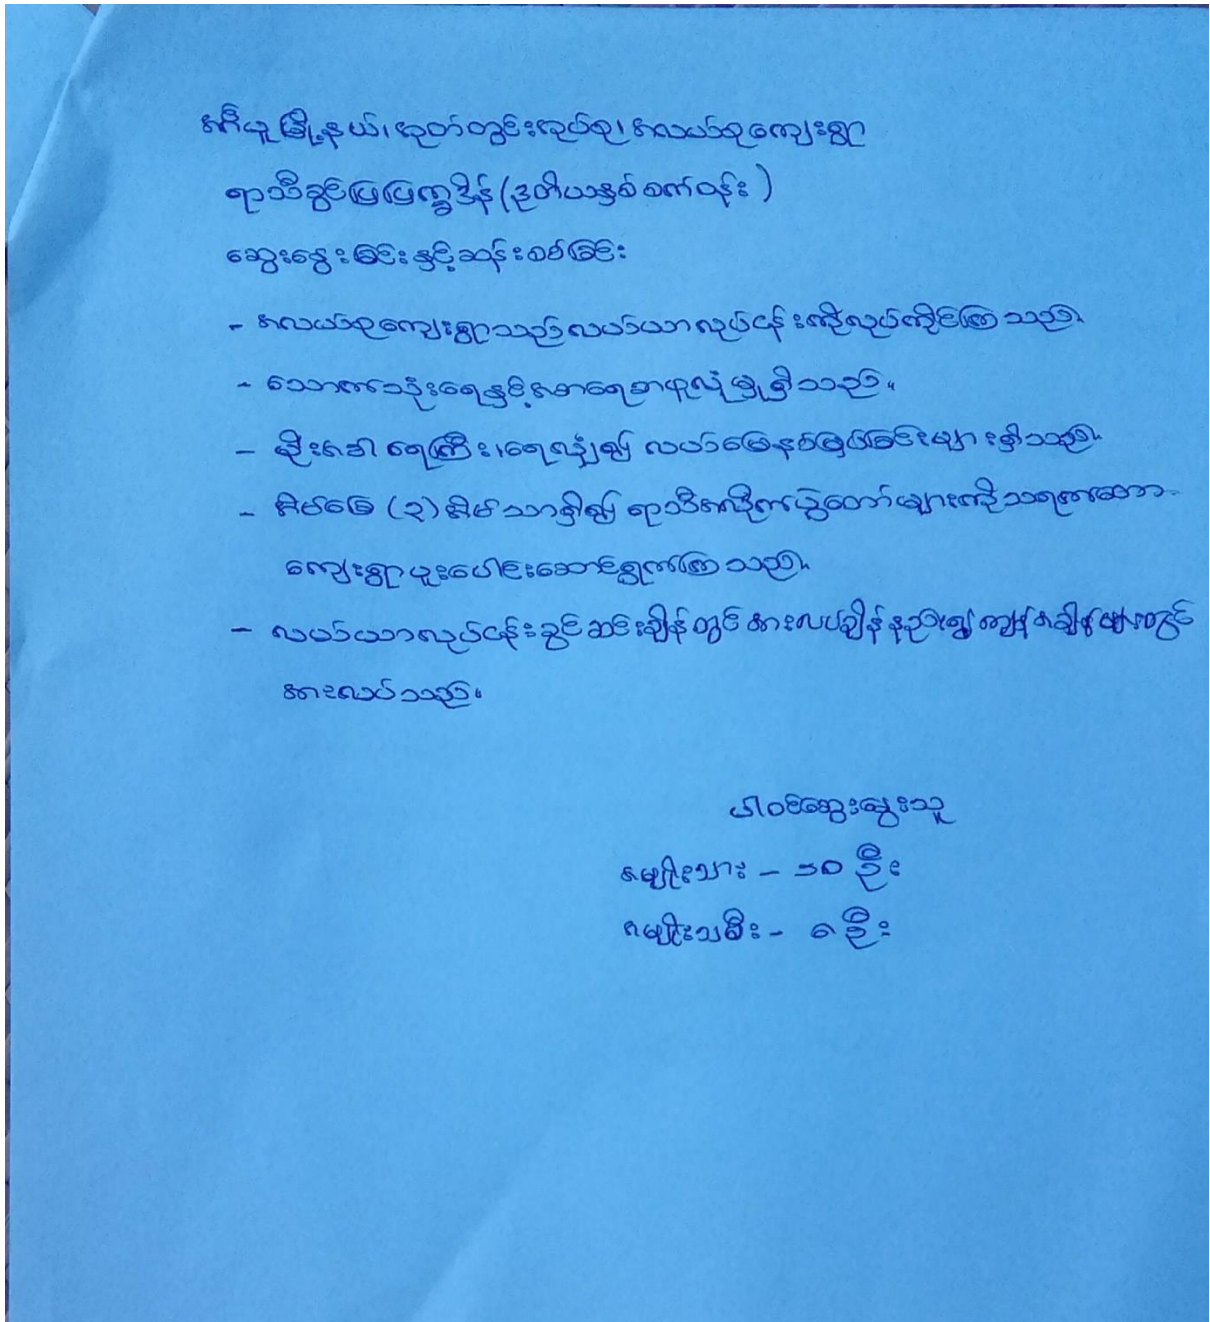 အင်္ဂပူမြို့နယ်၊ အုတ်တွင်းအုပ်စု၊ အလယ်စုကျေးရွာ
ရာသီခွင်ပြပြက္ခဒိန် (ဒုတိယနှစ်စက်ဝန်း)
ဆွေးနွေးခြင်းနှင့်ဆန်းစစ်ခြင်း
- အလယ်စုကျေးရွာသည် လယ်ယာလုပ်ငန်းကိုလုပ်ကိုင်ကြသည်။
- သောက်သုံးရေနှင့်အစားရေစာဖူလုံမှုရှိသည်။
- မိုးအခါ ရေကြီး၊ ရေလျှံ၍ လယ်မြေနစ်မြုပ်ခြင်းများရှိသည်။
- အိမ်ခြေ (၃) အိမ်သာရှိ၍ ရာသီအလိုက်ပွဲတော်များကို သရက်တော
ကျေးရွာပူးပေါင်းဆောင်ရွက်ကြသည်။
- လယ်ယာလုပ်ငန်းခွင်ဆင်းချိန်တွင် အားလပ်ချိန်နည်း၍ ကျန်အချိန်များတွင်
အားလပ်သည်။
ပါဝင်ဆွေးနွေးသူ
အမျိုးသား - ၁၀ ဦး
အမျိုးသမီး - ၈ ဦး